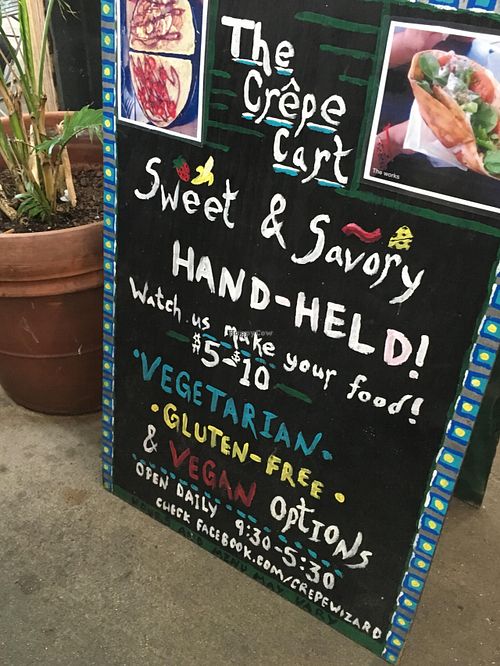 The
Crêpe
Cart
The works
Sweet & Savory
HAND-HELD!
Watch us make your food!
$5-$10
•VEGETARIAN•
•GLUTEN-FREE•
& VEGAN OPTIONS
OPEN DAILY 9:30-5:30
CHECK FACEBOOK.COM/CREPEWIZARD!
MENU MAY VARY